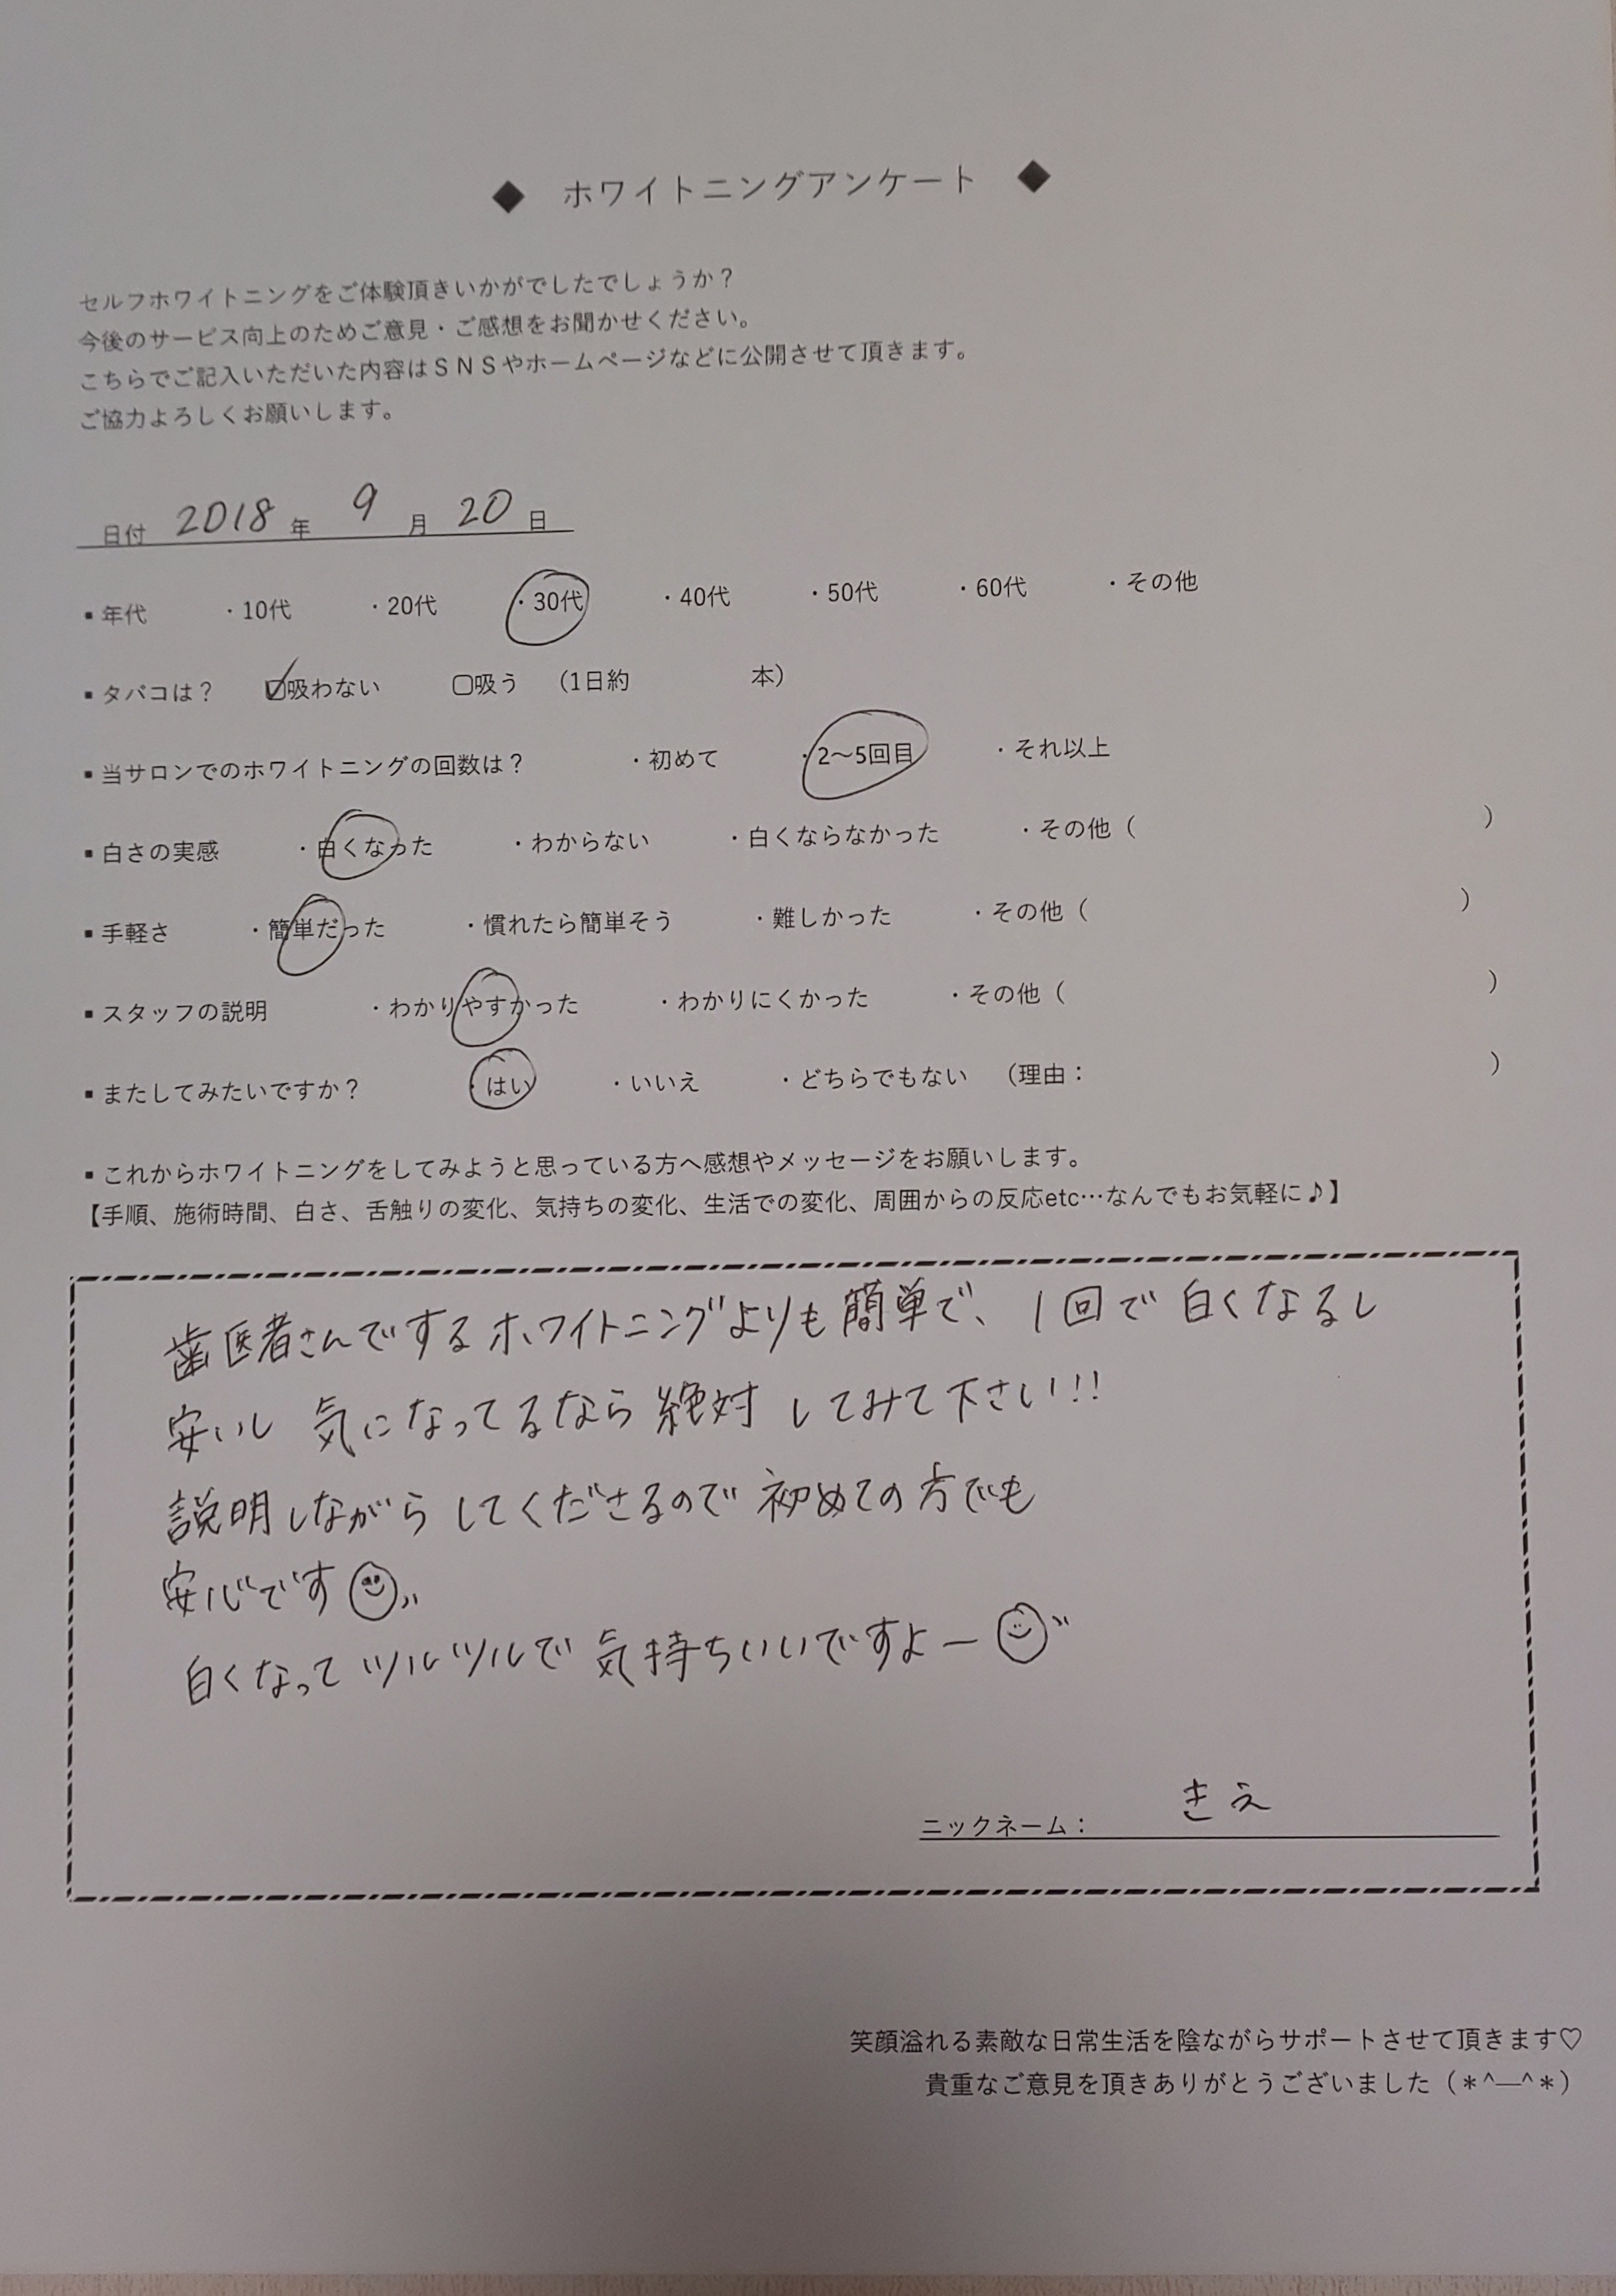 ◆ ホワイトニングアンケート ◆
セルフホワイトニングをご体験頂きいかがでしたでしょうか？
今後のサービス向上のためご意見・ご感想をお聞かせください。
こちらでご記入いただいた内容はＳＮＳやホームページなどに公開させて頂きます。
ご協力よろしくお願いします。
日付 2018 年 9 月 20 日
▪年代 ・10代 ・20代 ・30代 ・40代 ・50代 ・60代 ・その他
▪タバコは？ ☑吸わない ▢吸う （1日約 本）
▪当サロンでのホワイトニングの回数は？ ・初めて ・2～5回目 ・それ以上
▪白さの実感 ・白くなった ・わからない ・白くならなかった ・その他（ ）
▪手軽さ ・簡単だった ・慣れたら簡単そう ・難しかった ・その他（ ）
▪スタッフの説明 ・わかりやすかった ・わかりにくかった ・その他（ ）
▪またしてみたいですか？ ・はい ・いいえ ・どちらでもない （理由： ）
▪これからホワイトニングをしてみようと思っている方へ感想やメッセージをお願いします。
【手順、施術時間、白さ、舌触りの変化、気持ちの変化、生活での変化、周囲からの反応etc…なんでもお気軽に♪】
歯医者さんでするホワイトニングよりも簡単で、1回で白くなるし
安いし 気になってるなら絶対 してみて下さい!!
説明しながら してくださるので 初めての方でも
安心です
白くなって ツルツルで 気持ちいいですよー
ニックネーム： きえ
笑顔溢れる素敵な日常生活を陰ながらサポートさせて頂きます♡
貴重なご意見を頂きありがとうございました（＊^―^＊）